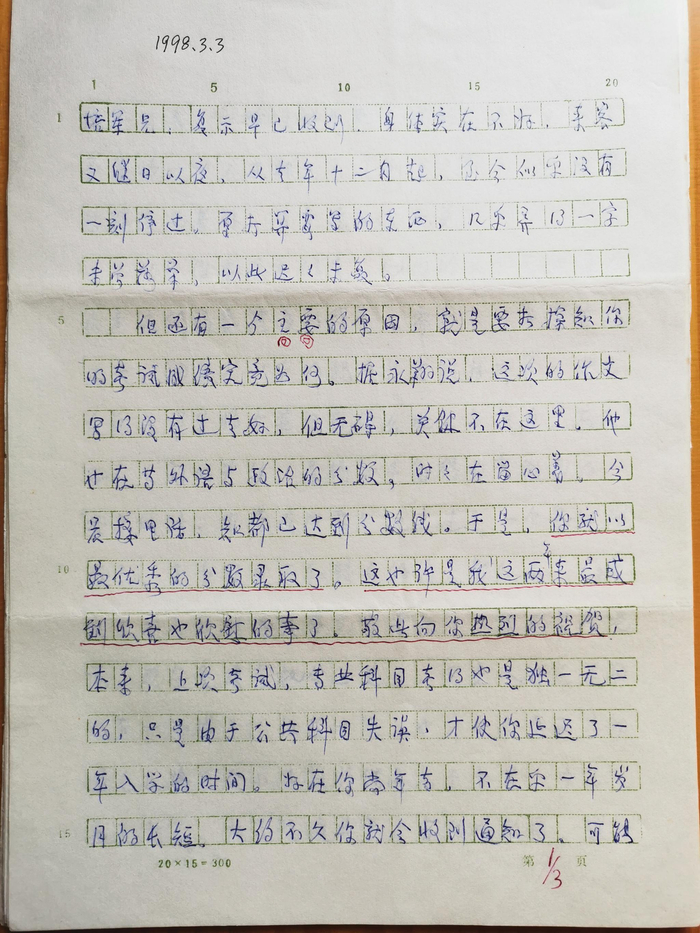 1998.3.3
1 5 10 15 20
1 培军兄，复示早已收到，身体实在不好，来客
又继日以夜，从去年十二月起，迄今似乎没有
一刻停过，原存异写的东西，几乎弄得一字
未曾落笔，以此迟迟未复。
5 但还有一个主要的原因，就是要想探知你
的考试成绩究竟如何。据永翔说，这次的作文
写得没有过去好，但无碍，关键不在这里。他
也在等外语与政治的分数，时时在留心着。今
晨接电话，知都已达到分数线。于是，你就以
10 最优秀的分数录取了。这也许是我这两年来最感
到欣喜也欣慰的事了。敬此向你热烈的祝贺，
本来，上次考试，专业科目考得也是独一无二
的，只是由于公共科目失误，才使你延迟了一
年入学的时间。好在你尚年青，不在乎一年岁
15 月的长短。大约不久你就会收到通知了。可能
20×15=300 第 1/3 页